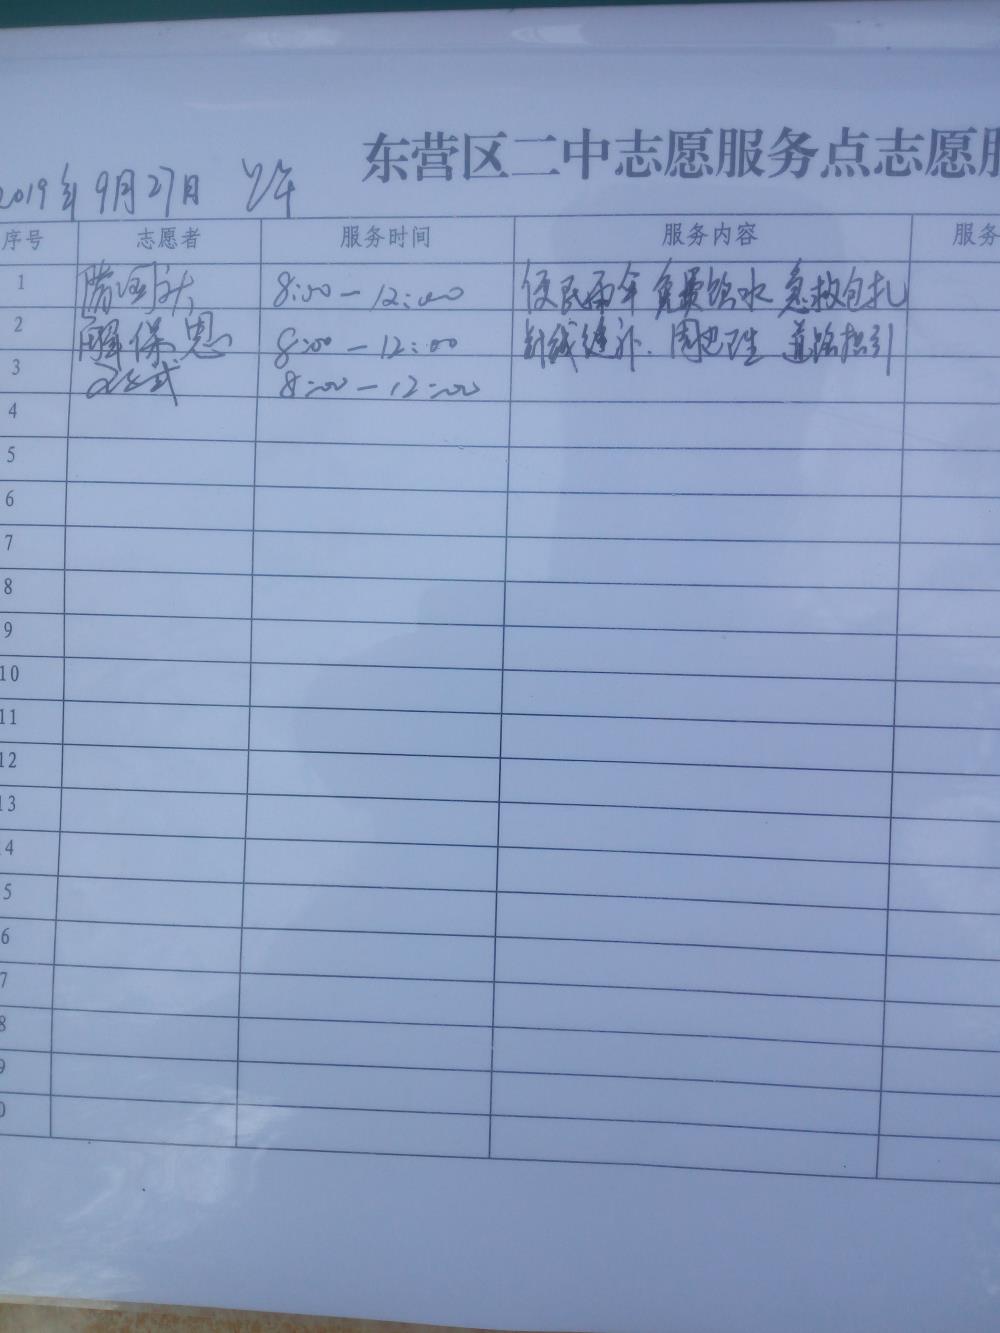 东营区二中志愿服务点志愿服
2019年9月27日 上午
序号 志愿者 服务时间 服务内容 服务
1 8:00-12:00 便民雨伞 免费饮水 急救包扎
2 解保恩 8:00-12:00 针线缝补. 周边卫生 道路指引
3 8:00-12:00
4
5
6
7
8
9
10
11
12
13
4
5
6
7
8
9
0